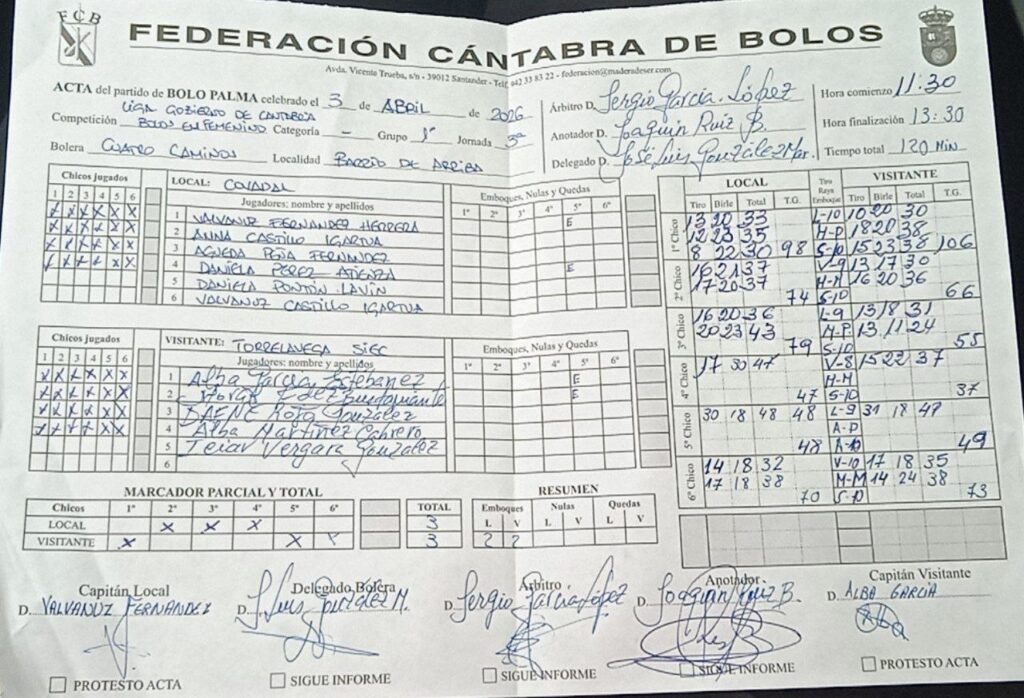 FCB
FEDERACIÓN CÁNTABRA DE BOLOS
Avda. Vicente Trueba, s/n - 39012 Santander - Telf. 942 33 83 22 - federacion@maderadeser.com
ACTA del partido de BOLO PALMA celebrado el 3 de ABRIL de 2026
Competición LIGA GOBIERNO DE CANTABRIA
BOLOS EN FEMENINO Categoría - Grupo 1º Jornada 3ª
Bolera CUATRO CAMINOS Localidad BARRIO DE ARRIBA
Árbitro D. Sergio García López
Anotador D. Joaquín Ruiz B.
Delegado D. José Luis González Mar.
Hora comienzo 11:30
Hora finalización 13:30
Tiempo total 120 MIN
Chicos jugados
1 2 3 4 5 6
X X X X X X
X X X X X X
X X X X X X
X X X X X X
LOCAL: COVADAL
Jugadores: nombre y apellidos
1 VALVANUZ FERNANDEZ HERRERA
2 ANNA CASTILLO IGARTUA
3 AGUEDA PEÑA FERNANDEZ
4 DANIELA PEREZ ATIENZA
5 DANIELA PONTÓN LAVÍN
6 VALVANUZ CASTILLO IGARTUA
Emboques, Nulas y Quedas
1º 2º 3º 4º 5º 6º
E
E
Chicos jugados
1 2 3 4 5 6
X X X X X X
X X X X X X
X X X X X X
X X X X X X
VISITANTE: TORRELAVEGA SIEC
Jugadores: nombre y apellidos
1 Alba García Estébanez
2
3 Rota González
4 Alba Martínez Cabrero
5 Vergara González
6
Emboques, Nulas y Quedas
1º 2º 3º 4º 5º 6º
E
E
LOCAL Tiro Raya Emboque VISITANTE
Tiro Birle Total T.G. Tiro Birle Total T.G.
1º Chico
13 20 33 L-10 10 20 30
12 23 35 M-P 18 20 38
8 22 30 98 S-10 15 23 38 106
2º Chico
16 21 37 V-9 13 17 30
17 20 37 M-M 16 20 36
74 S-10 66
3º Chico
16 20 36 L-9 13 18 31
20 23 43 M-P 13 11 24
79 S-10 55
4º Chico
17 30 47 V-8 15 22 37
M-M
47 S-10 37
5º Chico
30 18 48 48 L-9 31 18 49
A-P
48 A-10 49
6º Chico
14 18 32 V-10 17 18 35
17 18 38 M-M 14 24 38
70 S-10 73
MARCADOR PARCIAL Y TOTAL
Chicos 1º 2º 3º 4º 5º 6º TOTAL
LOCAL X X X 3
VISITANTE X X X 3
RESUMEN
Emboques Nulas Quedas
L V L V L V
2 2
Capitán Local
D. VALVANUZ FERNÁNDEZ
Delegado Bolera
D. J. Luis González M.
Árbitro
D. Sergio García López
Anotador
D. Joaquín Ruiz B.
Capitán Visitante
D. ALBA GARCÍA
Alba
PROTESTO ACTA
SIGUE INFORME
SIGUE INFORME
SIGUE INFORME
PROTESTO ACTA